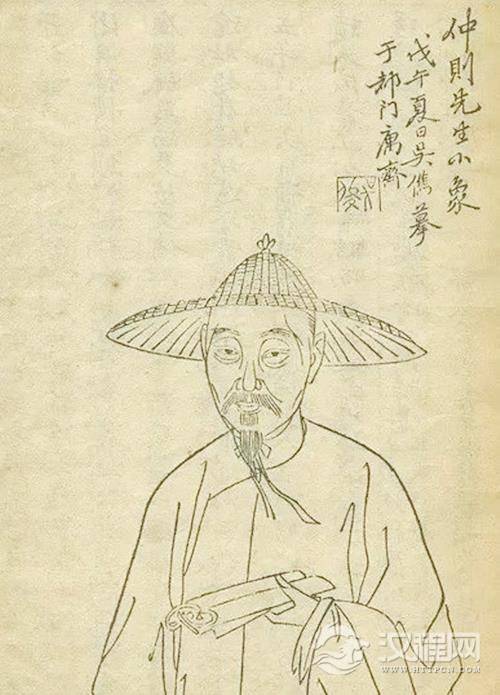 仲則先生小象
戊午夏日吳儁摹
于都门寓齋
汉程网
WWW.HTTPCN.COM